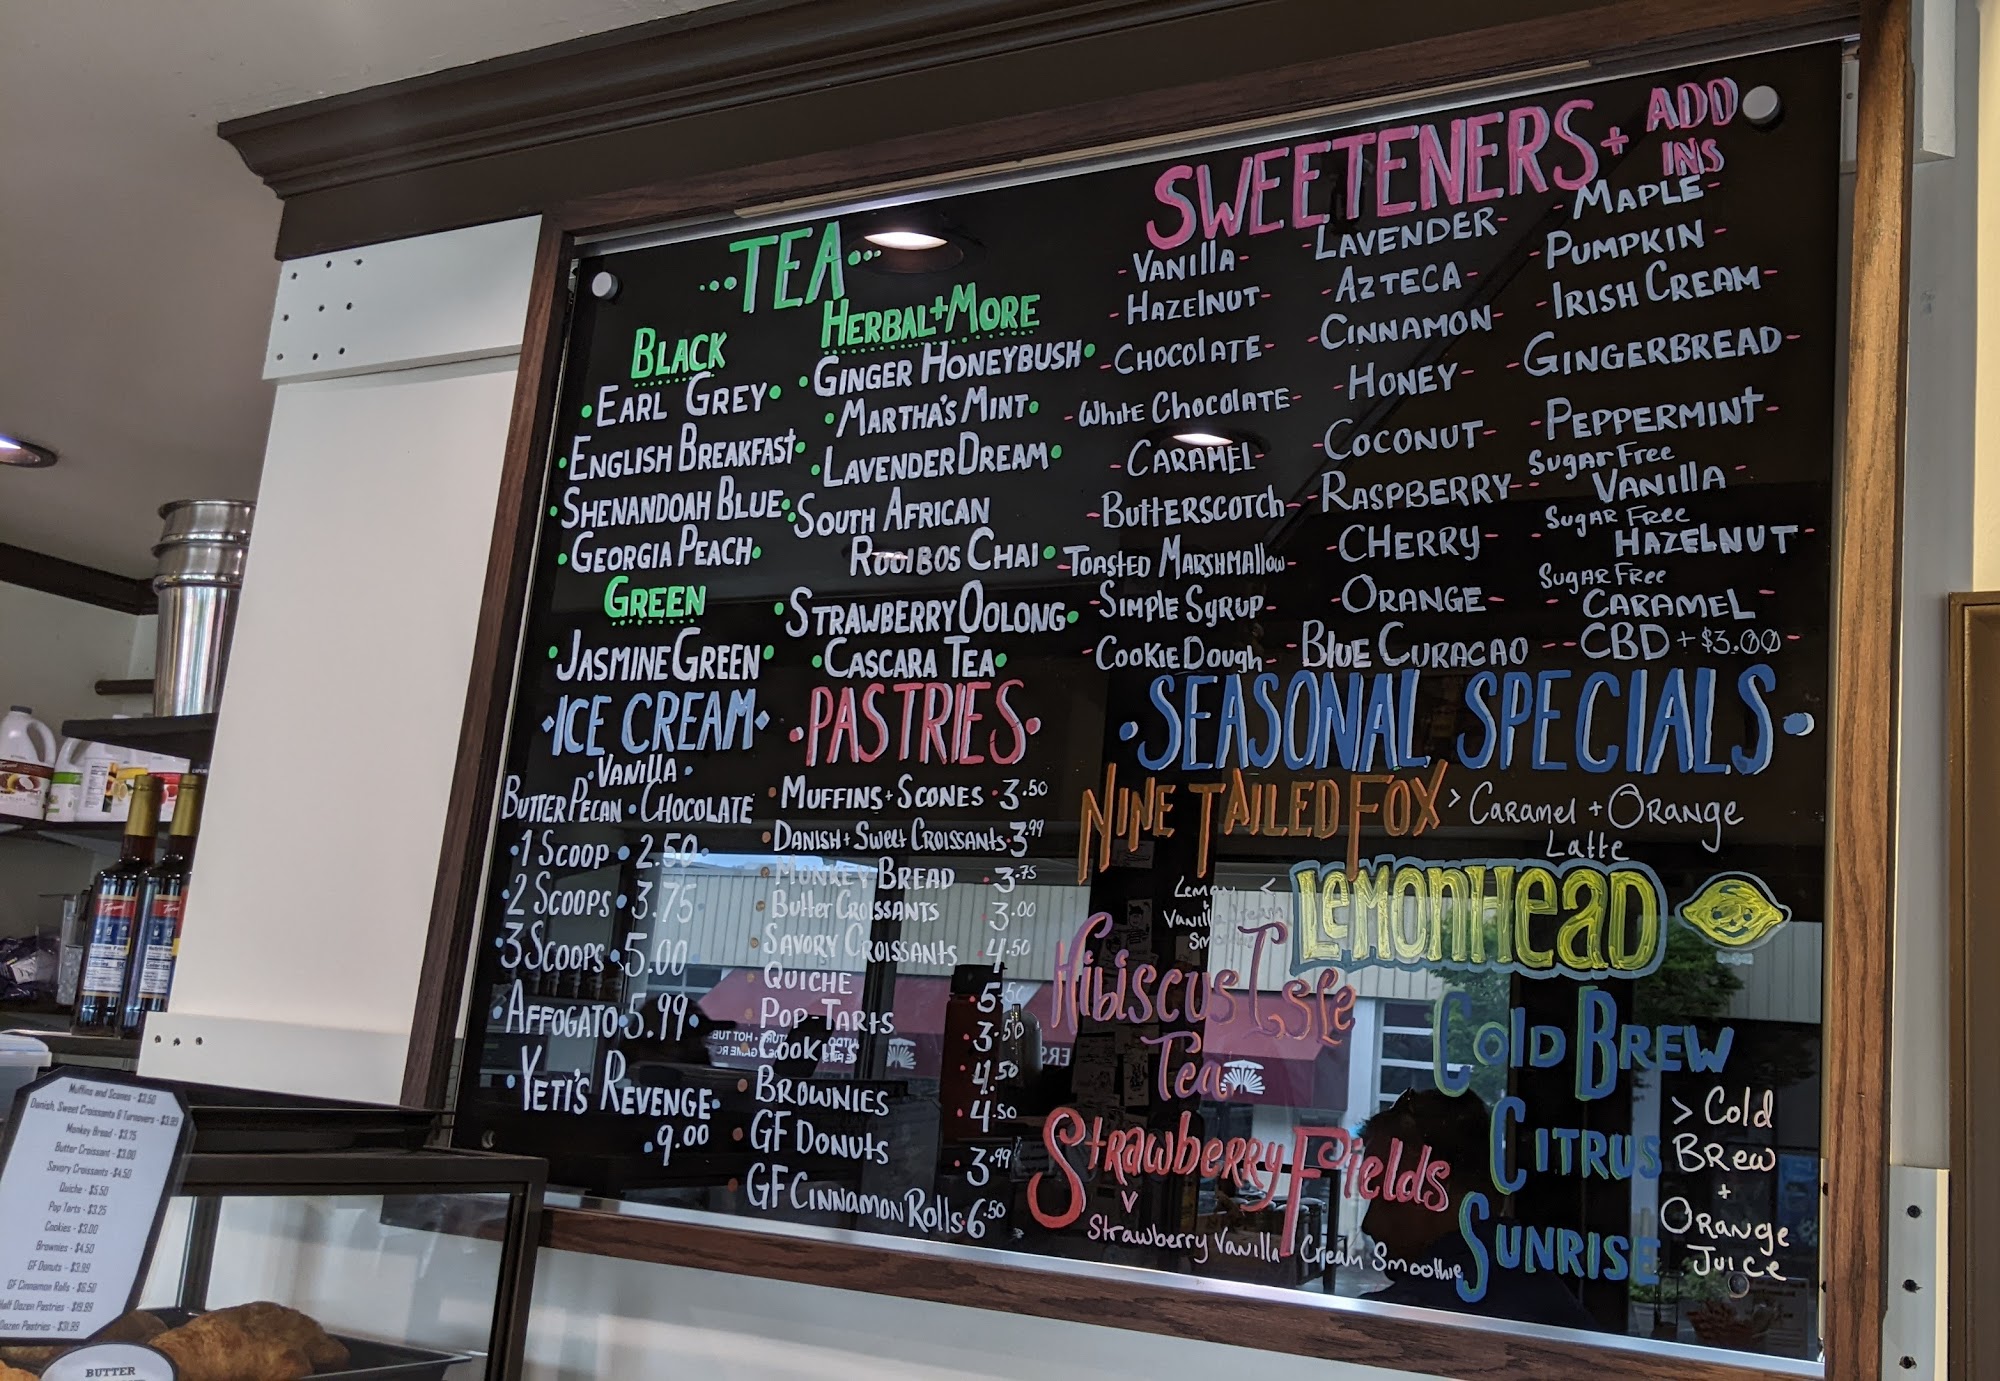 ...TEA...
BLACK
EARL GREY
ENGLISH BREAKFAST
SHENANDOAH BLUE
GEORGIA PEACH
GREEN
JASMINE GREEN
HERBAL + MORE
GINGER HONEYBUSH
MARTHA'S MINT
LAVENDER DREAM
SOUTH AFRICAN
ROOIBOS CHAI
STRAWBERRY OOLONG
CASCARA TEA
ICE CREAM
VANILLA
BUTTER PECAN • CHOCOLATE
1 SCOOP • 2.50
2 SCOOPS • 3.75
3 SCOOPS • 5.00
AFFOGATO • 5.99
YETI'S REVENGE
9.00
PASTRIES
MUFFINS + SCONES • 3.50
DANISH + SWEET CROISSANTS • 3.99
MONKEY BREAD • 3.75
BUTTER CROISSANTS 3.00
SAVORY CROISSANTS 4.50
QUICHE 5.50
POP-TARTS 3.50
COOKIES
BROWNIES 4.50
GF DONUTS 3.99
GF CINNAMON ROLLS • 6.50
SWEETENERS + ADD INS
- VANILLA -
- HAZELNUT -
- CHOCOLATE -
- WHITE CHOCOLATE -
- CARAMEL -
- BUTTERSCOTCH -
- TOASTED MARSHMALLOW -
- SIMPLE SYRUP -
- COOKIE DOUGH -
- LAVENDER -
- AZTECA -
- CINNAMON -
- HONEY -
- COCONUT -
- RASPBERRY -
- CHERRY -
- ORANGE -
- BLUE CURACAO -
- MAPLE -
- PUMPKIN -
- IRISH CREAM -
- GINGERBREAD -
- PEPPERMINT -
SUGAR FREE
VANILLA -
SUGAR FREE
HAZELNUT -
SUGAR FREE
- CARAMEL -
- CBD + $3.00 -
SEASONAL SPECIALS
NINE TAILED FOX > Caramel + Orange
Latte
LEMONHEAD
Lemon <
+
Vanilla Cream
HIBISCUS ISLE
TEA
STRAWBERRY FIELDS
Strawberry Vanilla Cream Smoothie
COLD BREW
CITRUS
SUNRISE
> Cold
Brew
+
Orange
Juice
Muffins and Scones - $3.50
Danish, Sweet Croissants & Turnovers - $3.99
Monkey Bread - $3.75
Butter Croissant - $3.00
Savory Croissants - $4.50
Quiche - $5.50
Pop Tarts - $3.25
Cookies - $3.00
Brownies - $4.50
GF Donuts - $3.99
GF Cinnamon Rolls - $6.50
Half Dozen Pastries - $19.99
Dozen Pastries - $31.99
BUTTER